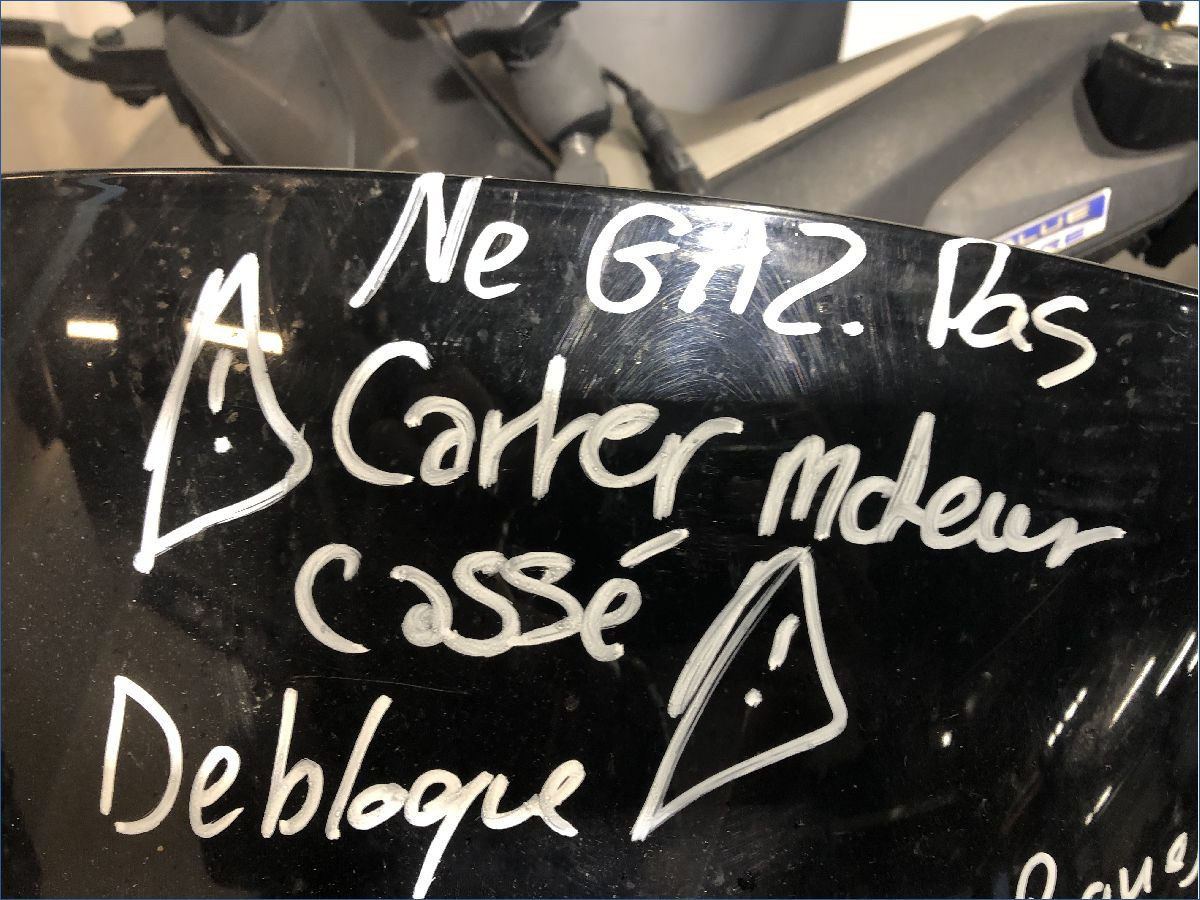 Ne GAZ. Pas
Carter moteur
cassé
Debloque